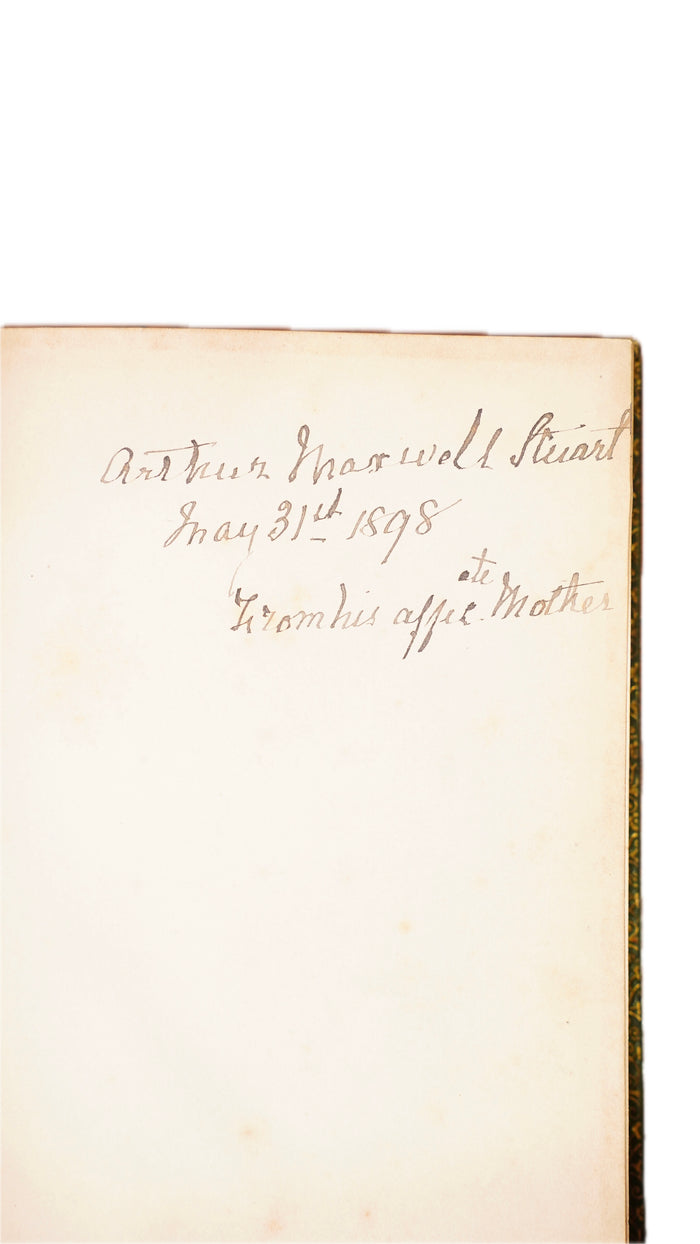 Arthur Maxwell Stuart
May 31st 1898
From his affec.ate Mother